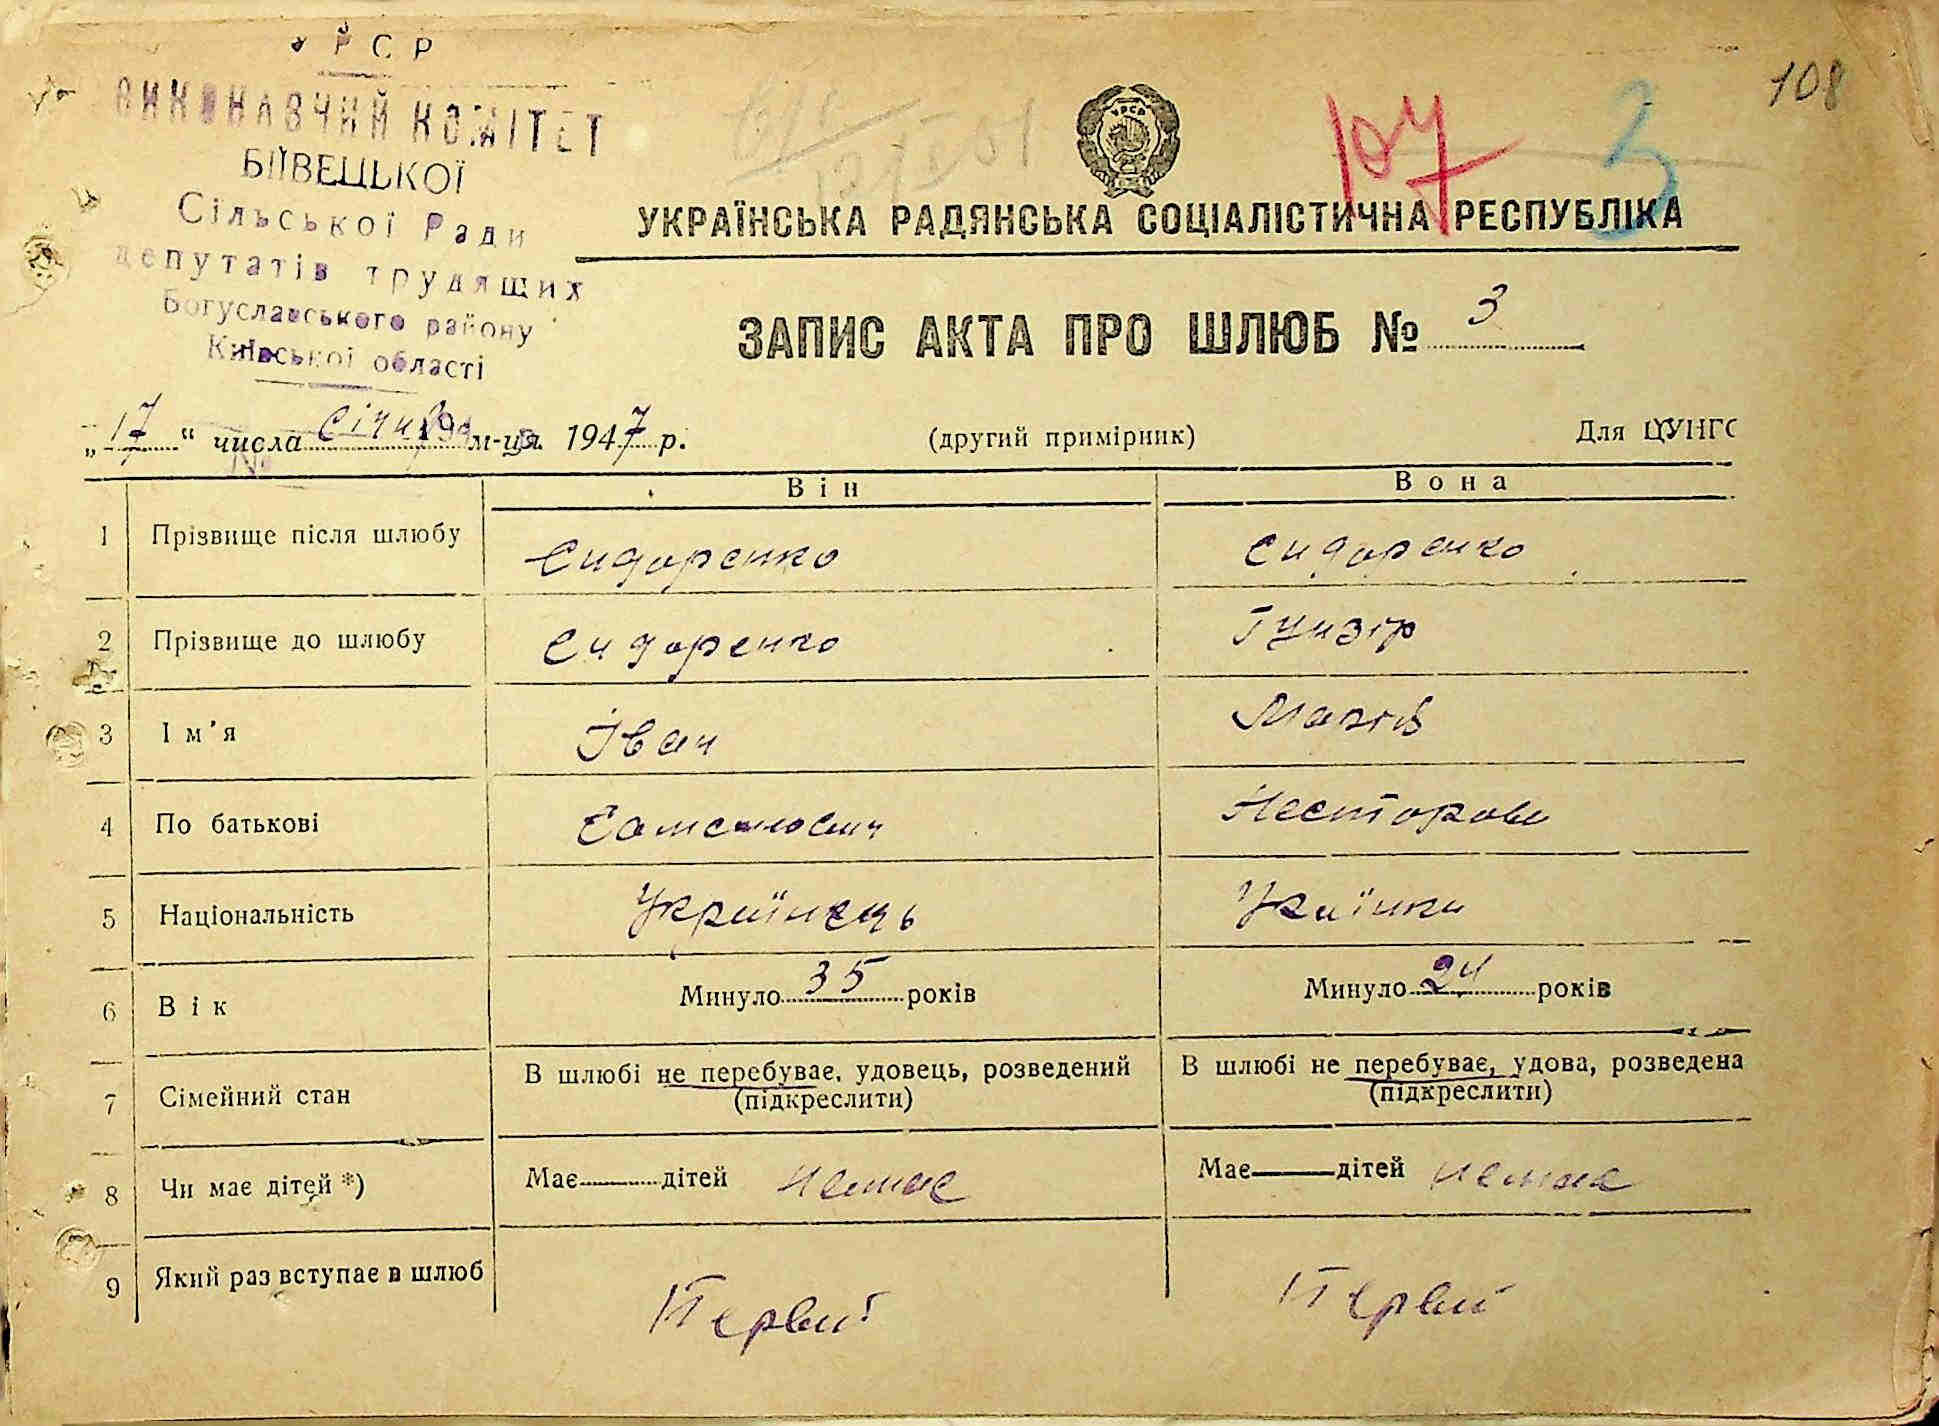 УРСР
ВИКОНАВЧИЙ КОМІТЕТ
БІЇВЕЦЬКОЇ
Сільської Ради
депутатів трудящих
Богуславського району
Київської області
108
107
3
УКРАЇНСЬКА РАДЯНСЬКА СОЦІАЛІСТИЧНА РЕСПУБЛІКА
ЗАПИС АКТА ПРО ШЛЮБ № 3
„17“ числа Січня м-ця 1947 р. (другий примірник) Для ЦУНГС
Він Вона
1 Прізвище після шлюбу Сидоренко Сидоренко
2 Прізвище до шлюбу Сидоренко Гунзір
3 Ім'я Іван
4 По батькові Самсонович Несторовн
5 Національність Українець Украінка
6 Вік Минуло 35 років Минуло 24 років
7 Сімейний стан В шлюбі не перебуває, удовець, розведений (підкреслити) В шлюбі не перебуває, удова, розведена (підкреслити)
8 Чи має дітей *) Має дітей немає Має дітей немає
9 Який раз вступає в шлюб Первий Первий